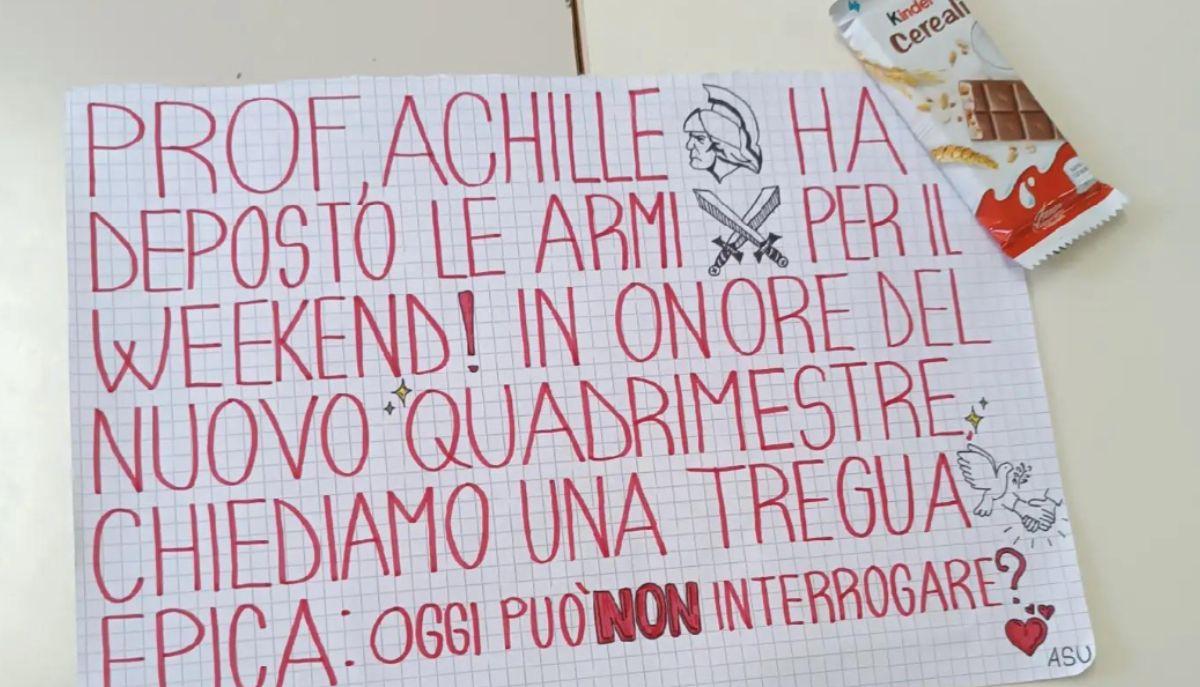 PROF, ACHILLE HA
DEPOSTO LE ARMI PER IL
WEEKEND! IN ONORE DEL
NUOVO QUADRIMESTRE
CHIEDIAMO UNA TREGUA
EPICA: OGGI PUÒ NON INTERROGARE?
ASU
Kinder
Cereali